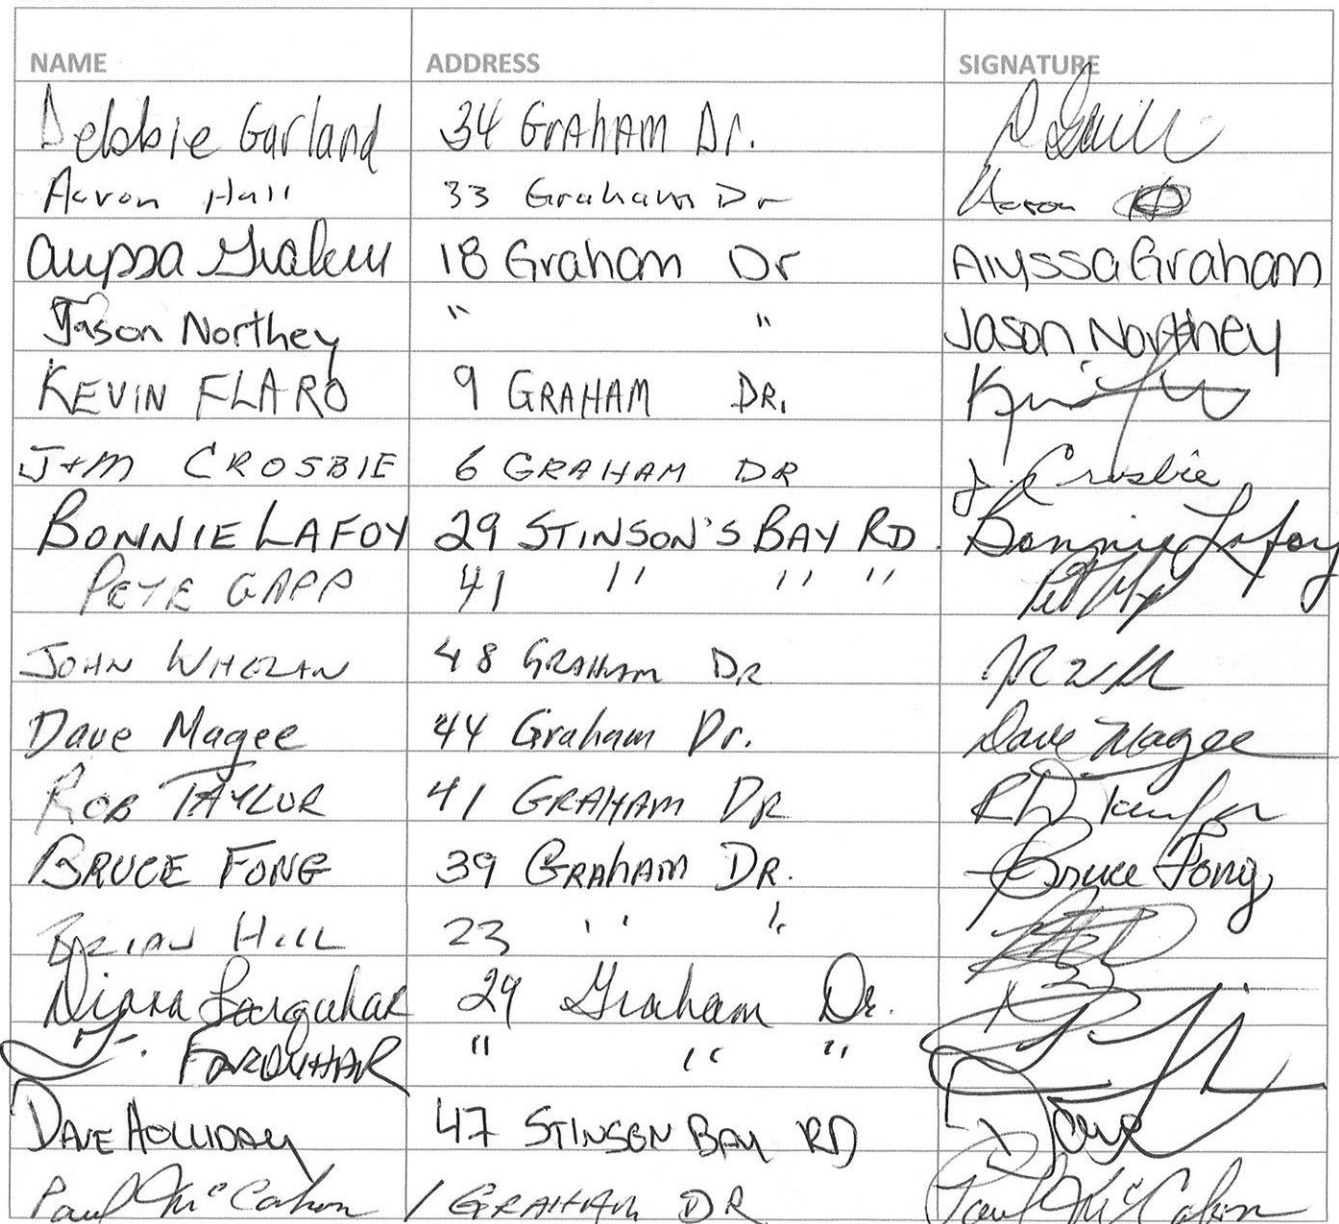 NAME ADDRESS SIGNATURE
Debbie Garland 34 GRAHAM Dr.
Aaron Hall 33 Graham Dr Aaron
Alyssa Graham 18 Graham Dr Alyssa Graham
Jason Northey " " Jason Northey
KEVIN FLARO 9 GRAHAM DR.
J+M CROSBIE 6 GRAHAM DR J. Crosbie
BONNIE LAFOY 29 STINSON'S BAY RD. Bonnie Lafoy
PETE GAPP 41 " " "
JOHN WHELAN 48 GRAHAM DR
Dave Magee 44 Graham Dr. Dave Magee
ROB TAYLOR 41 GRAHAM DR
BRUCE FONG 39 GRAHAM DR. Bruce Fong
BRIAN HILL 23 " "
Diana Farquhar 29 Graham Dr.
FARQUHAR " " "
DAVE HOLLIDAY 47 STINSON BAY RD Dave
Paul McCahon 1 GRAHAM DR Paul McCahon